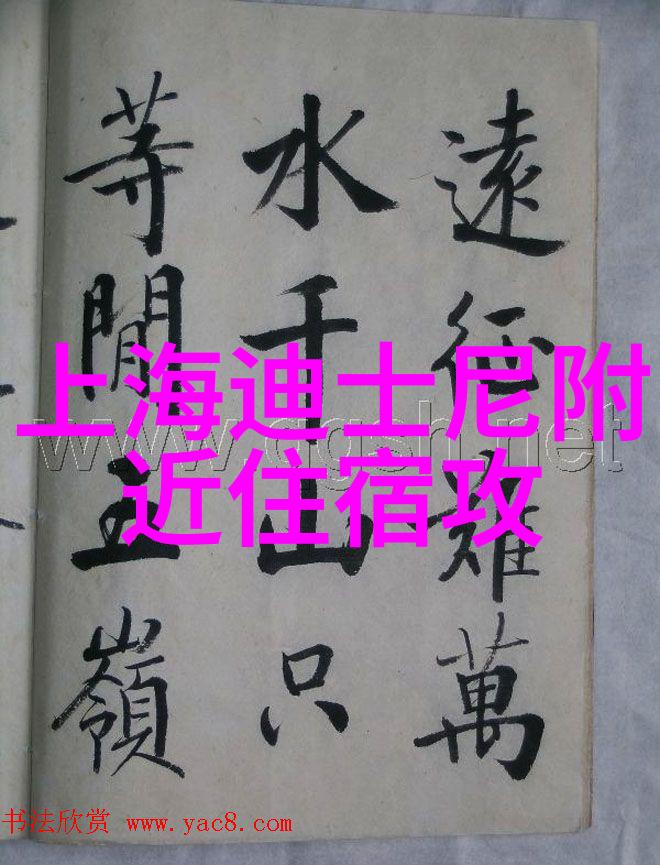 遠征難萬
水千山只
等閒五嶺
上海迪士尼附
近住宿攻
书法欣赏 www.yac8.com